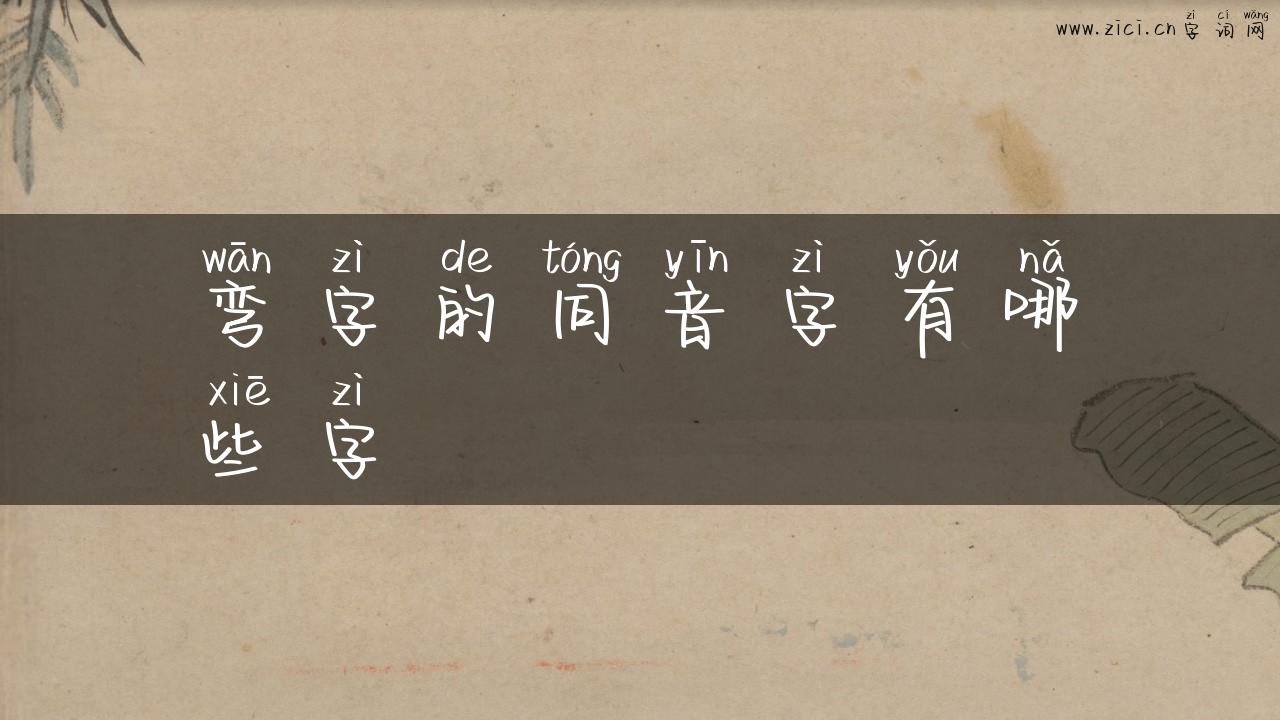 zì cí wǎng
www.zici.cn 字 词 网
wān zì de tóng yīn zì yǒu nǎ
弯 字 的 同 音 字 有 哪
xiē zì
些 字